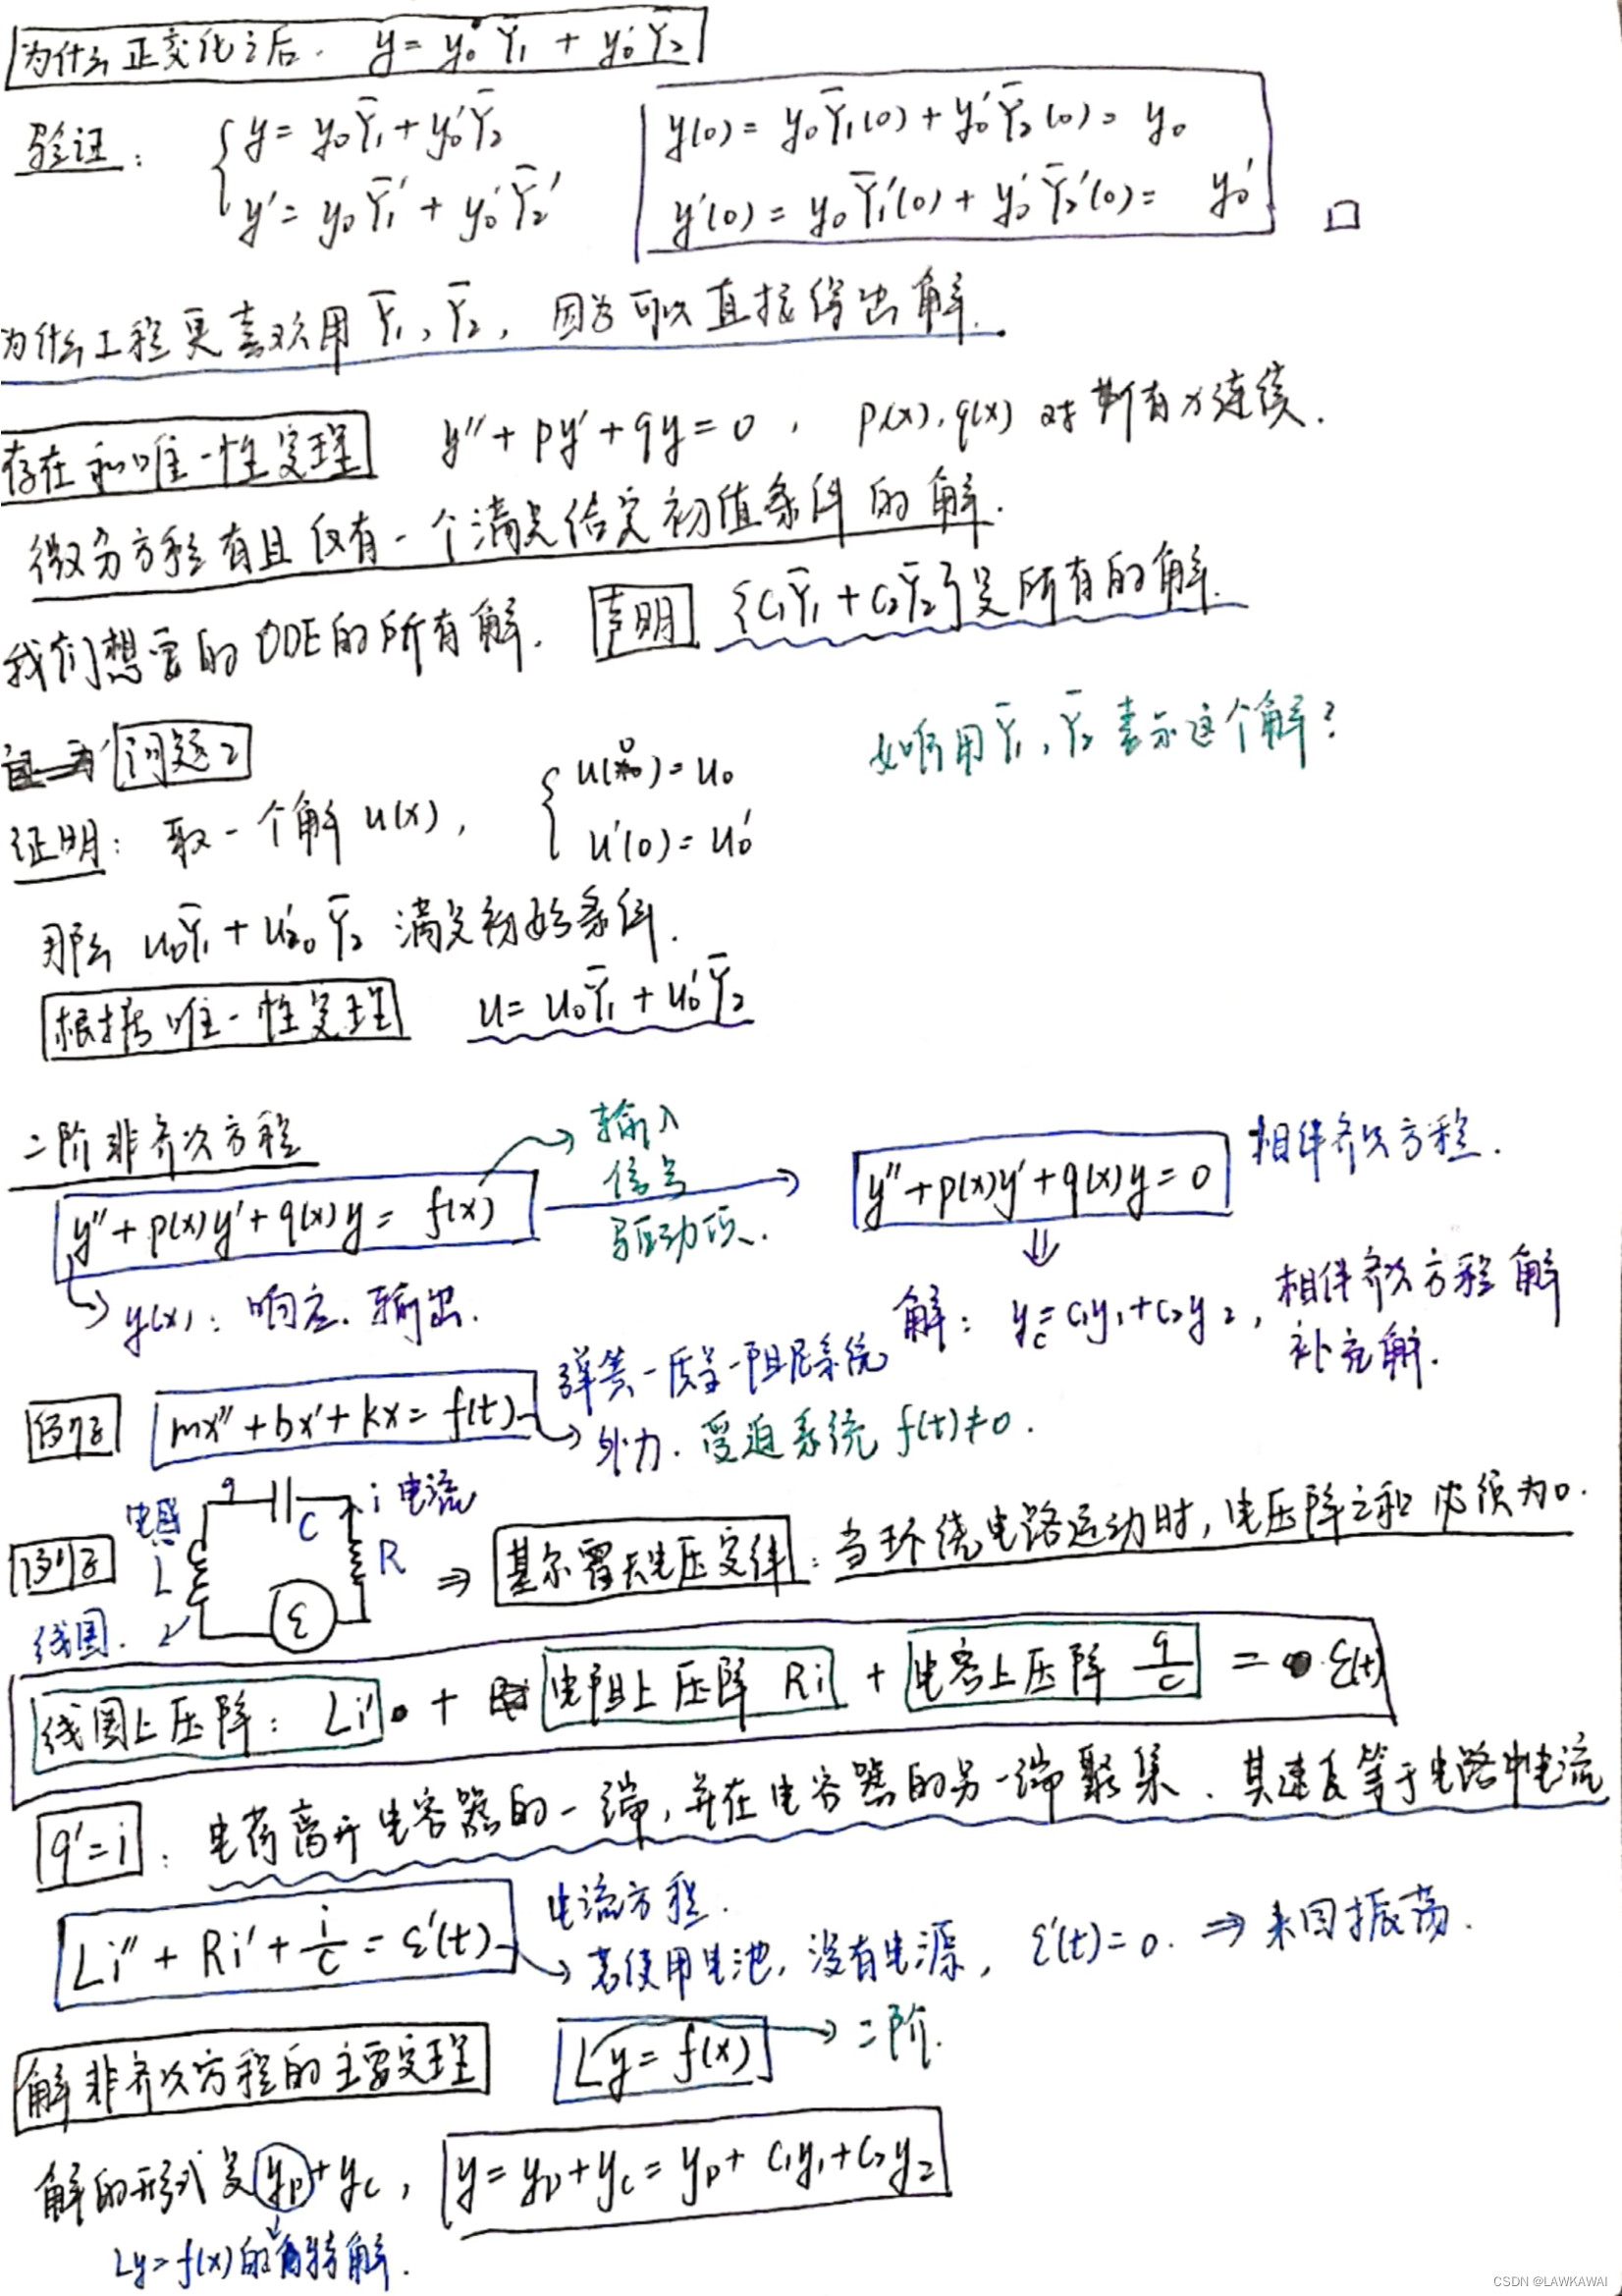 为什么正交化之后. y = y₀ Ȳ₁ + y₀' Ȳ₂
验证: { y = y₀Ȳ₁ + y₀'Ȳ₂ y(0) = y₀Ȳ₁(0) + y₀'Ȳ₂(0) = y₀
y' = y₀Ȳ₁' + y₀'Ȳ₂' y'(0) = y₀Ȳ₁'(0) + y₀'Ȳ₂'(0) = y₀' □
为什么工程更喜欢用 Ȳ₁, Ȳ₂, 因为可以直接得出解.
存在和唯一性定理 y'' + py' + qy = 0, p(x), q(x) 对所有x连续.
微分方程有且仅有一个满足给定初值条件的解.
我们想要的ODE的所有解. 声明 {C₁Ȳ₁ + C₂Ȳ₂}是所有的解.
问题2 如何用Ȳ₁, Ȳ₂ 表示这个解?
证明: 取一个解 u(x), { u(0) = u₀
u'(0) = u₀'
那么 u₀Ȳ₁ + u₀' Ȳ₂ 满足初始条件.
根据唯一性定理 u = u₀Ȳ₁ + u₀'Ȳ₂
二阶非齐次方程
y'' + p(x)y' + q(x)y = f(x) → 输入
信号
驱动项.
→ y''+p(x)y'+q(x)y = 0 相伴齐次方程.
⇓
→ y(x): 响应. 输出.
解: y_c = c₁y₁+c₂y₂, 相伴齐次方程解
补充解.
例子 mx'' + bx' + kx = f(t) 弹簧-质量-阻尼系统
→ 外力. 受迫系统 f(t)≠0.
例子 电感 L q C i 电流 R ε
线圈.
⇒ 基尔霍夫电压定律: 当环绕电路运动时, 电压降之和必须为0.
线圈上压降: Li' + 电阻上压降 Ri + 电容上压降 q/c = ε(t)
q'=i: 电荷离开电容器的一端, 并在电容器的另一端聚集. 其速度等于电路中电流
Li'' + Ri' + i/c = ε'(t) 电流方程.
→ 若使用电池, 没有电源, ε'(t)=0. ⇒ 来回振荡.
解非齐次方程的主要定理 Ly = f(x) → 二阶.
解的形式是 y_p + y_c, y = y_p + y_c = y_p + c₁y₁+c₂y₂
Ly = f(x)的特解.
CSDN @LAWKAWAI